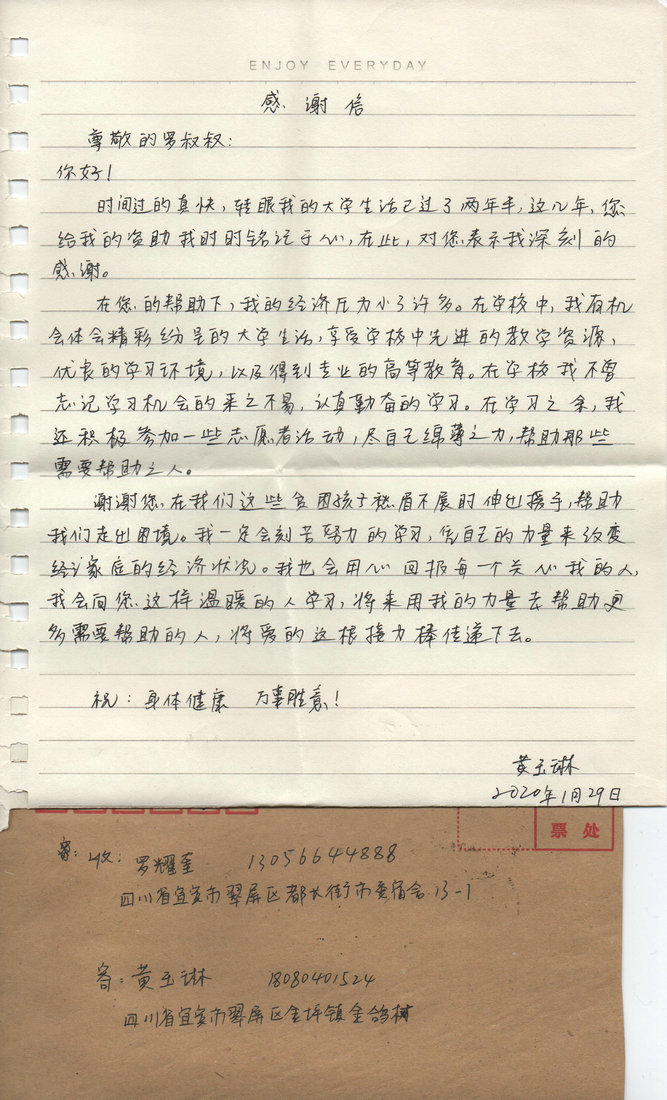 ENJOY EVERYDAY
感谢信
尊敬的罗叔叔：
你好！
时间过的真快，转眼我的大学生活已过了两年半，这几年，您
给我的资助我时时铭记于心，在此，对您表示我深刻的
感谢。
在您的帮助下，我的经济压力小了许多。在学校中，我有机
会体会精彩纷呈的大学生活，享受学校中先进的教学资源，
优良的学习环境，以及得到专业的高等教育。在学校我不曾
忘记学习机会的来之不易，认真勤奋的学习。在学习之余，我
还积极参加一些志愿者活动，尽自己绵薄之力，帮助那些
需要帮助之人。
谢谢您在我们这些贫困孩子愁眉不展时伸出援手，帮助
我们走出困境。我一定会刻苦努力的学习，凭自己的力量来改变
经济家庭的经济状况。我也会用心回报每一个关心我的人，
我会向您这样温暖的人学习，将来用我的力量去帮助更
多需要帮助的人，将爱的这根接力棒传递下去。
祝：身体健康 万事胜意！
黄玉琳
2020年1月29日
票处
寄：收：罗耀奎 13056644888
四川省宜宾市翠屏区都长街市委宿舍13-1
寄：黄玉琳 18080401524
四川省宜宾市翠屏区金坪镇金鸽树